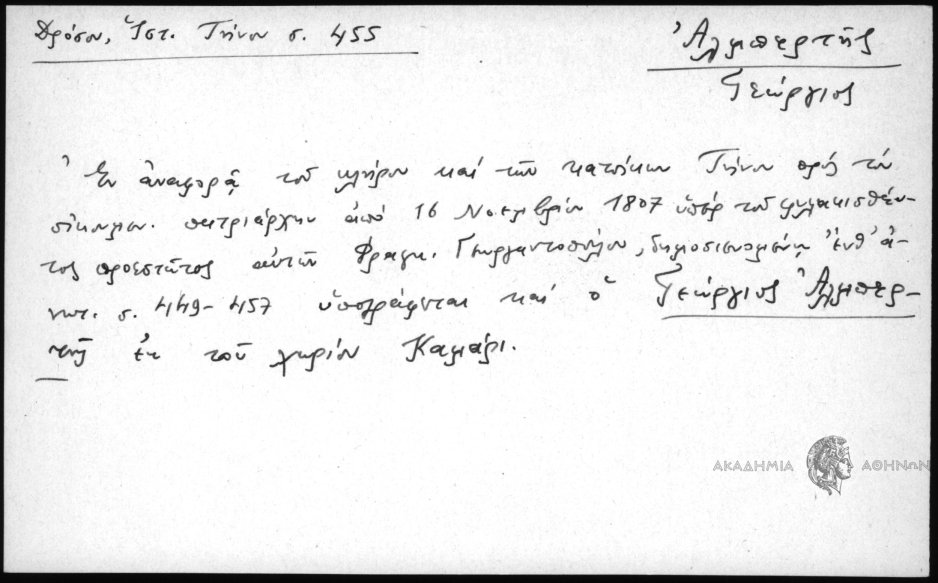 Δρόσου, Ἱστ. Τήνου σ. 455
Ἀλμπερτῆς
Γεώργιος
Ἐν ἀναφορᾷ τοῦ κλήρου καὶ τῶν κατοίκων Τήνου πρὸς τὸν
οἰκουμεν. πατριάρχην ἀπὸ 16 Νοεμβρίου 1807 ὑπὲρ τοῦ φυλακισθέν-
τος προεστῶτος αὐτῶν Φραγκ. Γεωργαντοπούλου, δημοσιευομένῃ ἔνθ' ἀ-
νωτ. σ. 449-457 ὑπογράφεται καὶ ὁ Γεώργιος Ἀλμπερ-
τῆς ἐκ τοῦ χωρίου Καμάρι.
ΑΚΑΔΗΜΙΑ ΑΘΗΝΩΝ